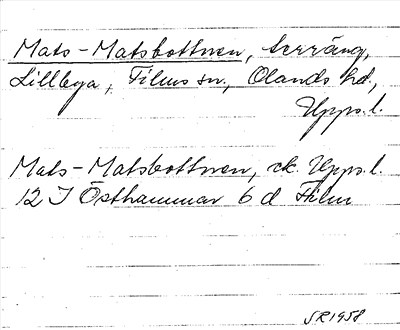 Mats-Matsbottnen, terräng,
Lillbyn, Films sn., Olands hd,
Upps.l.
Mats-Matsbottnen, ek. Upps.l.
12 I Östhammar 6 d Film
SR 1958